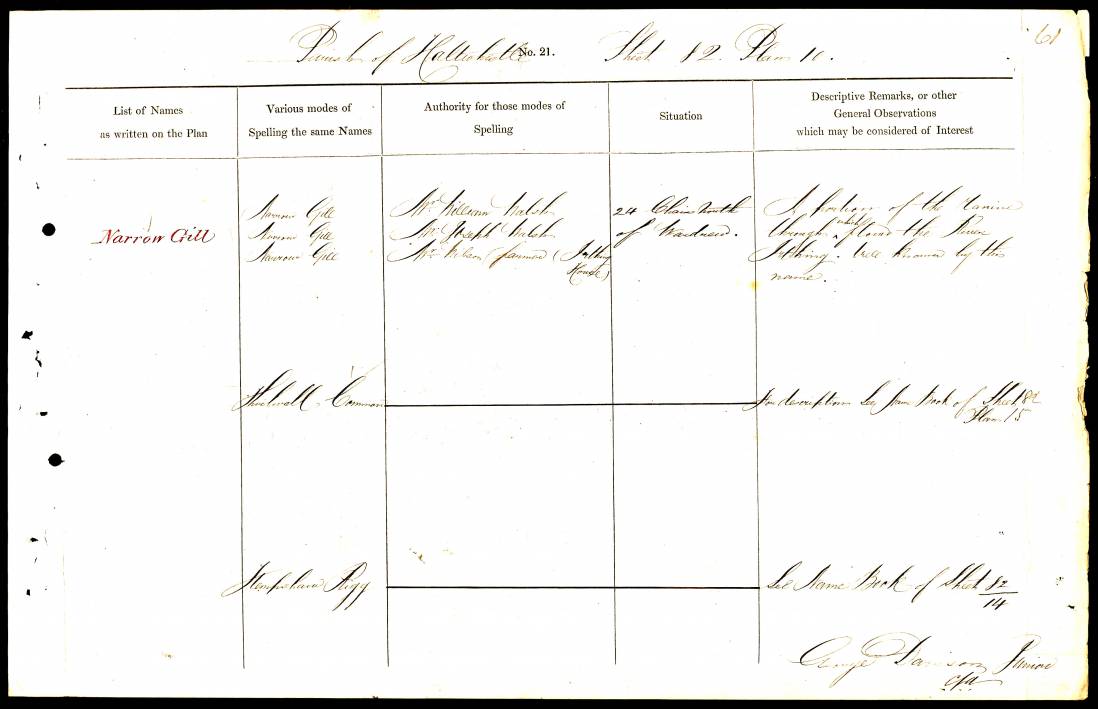 61
Parish of Haltwhistle No. 21. Sheet 82. Plan 10.
List of Names
as written on the Plan
Various modes of
Spelling the same Names
Authority for those modes of
Spelling
Situation
Descriptive Remarks, or other
General Observations
which may be considered of Interest
Narrow Gill
Narrow Gill
Narrow Gill
Narrow Gill
Mr. William Walsh
Mr. Joseph Walsh
Mr. Wilson (farmer) (Irthing
House)
24 Chains North
of Wardrew.
A portion of the Ravine
through which flows the River
Irthing. Well known by this
name.
Thirlwall Common
For description See Name Book of Sheet 82
Plan 15
Rigg
See Name Book of Sheet 82
14
George Davison Junior